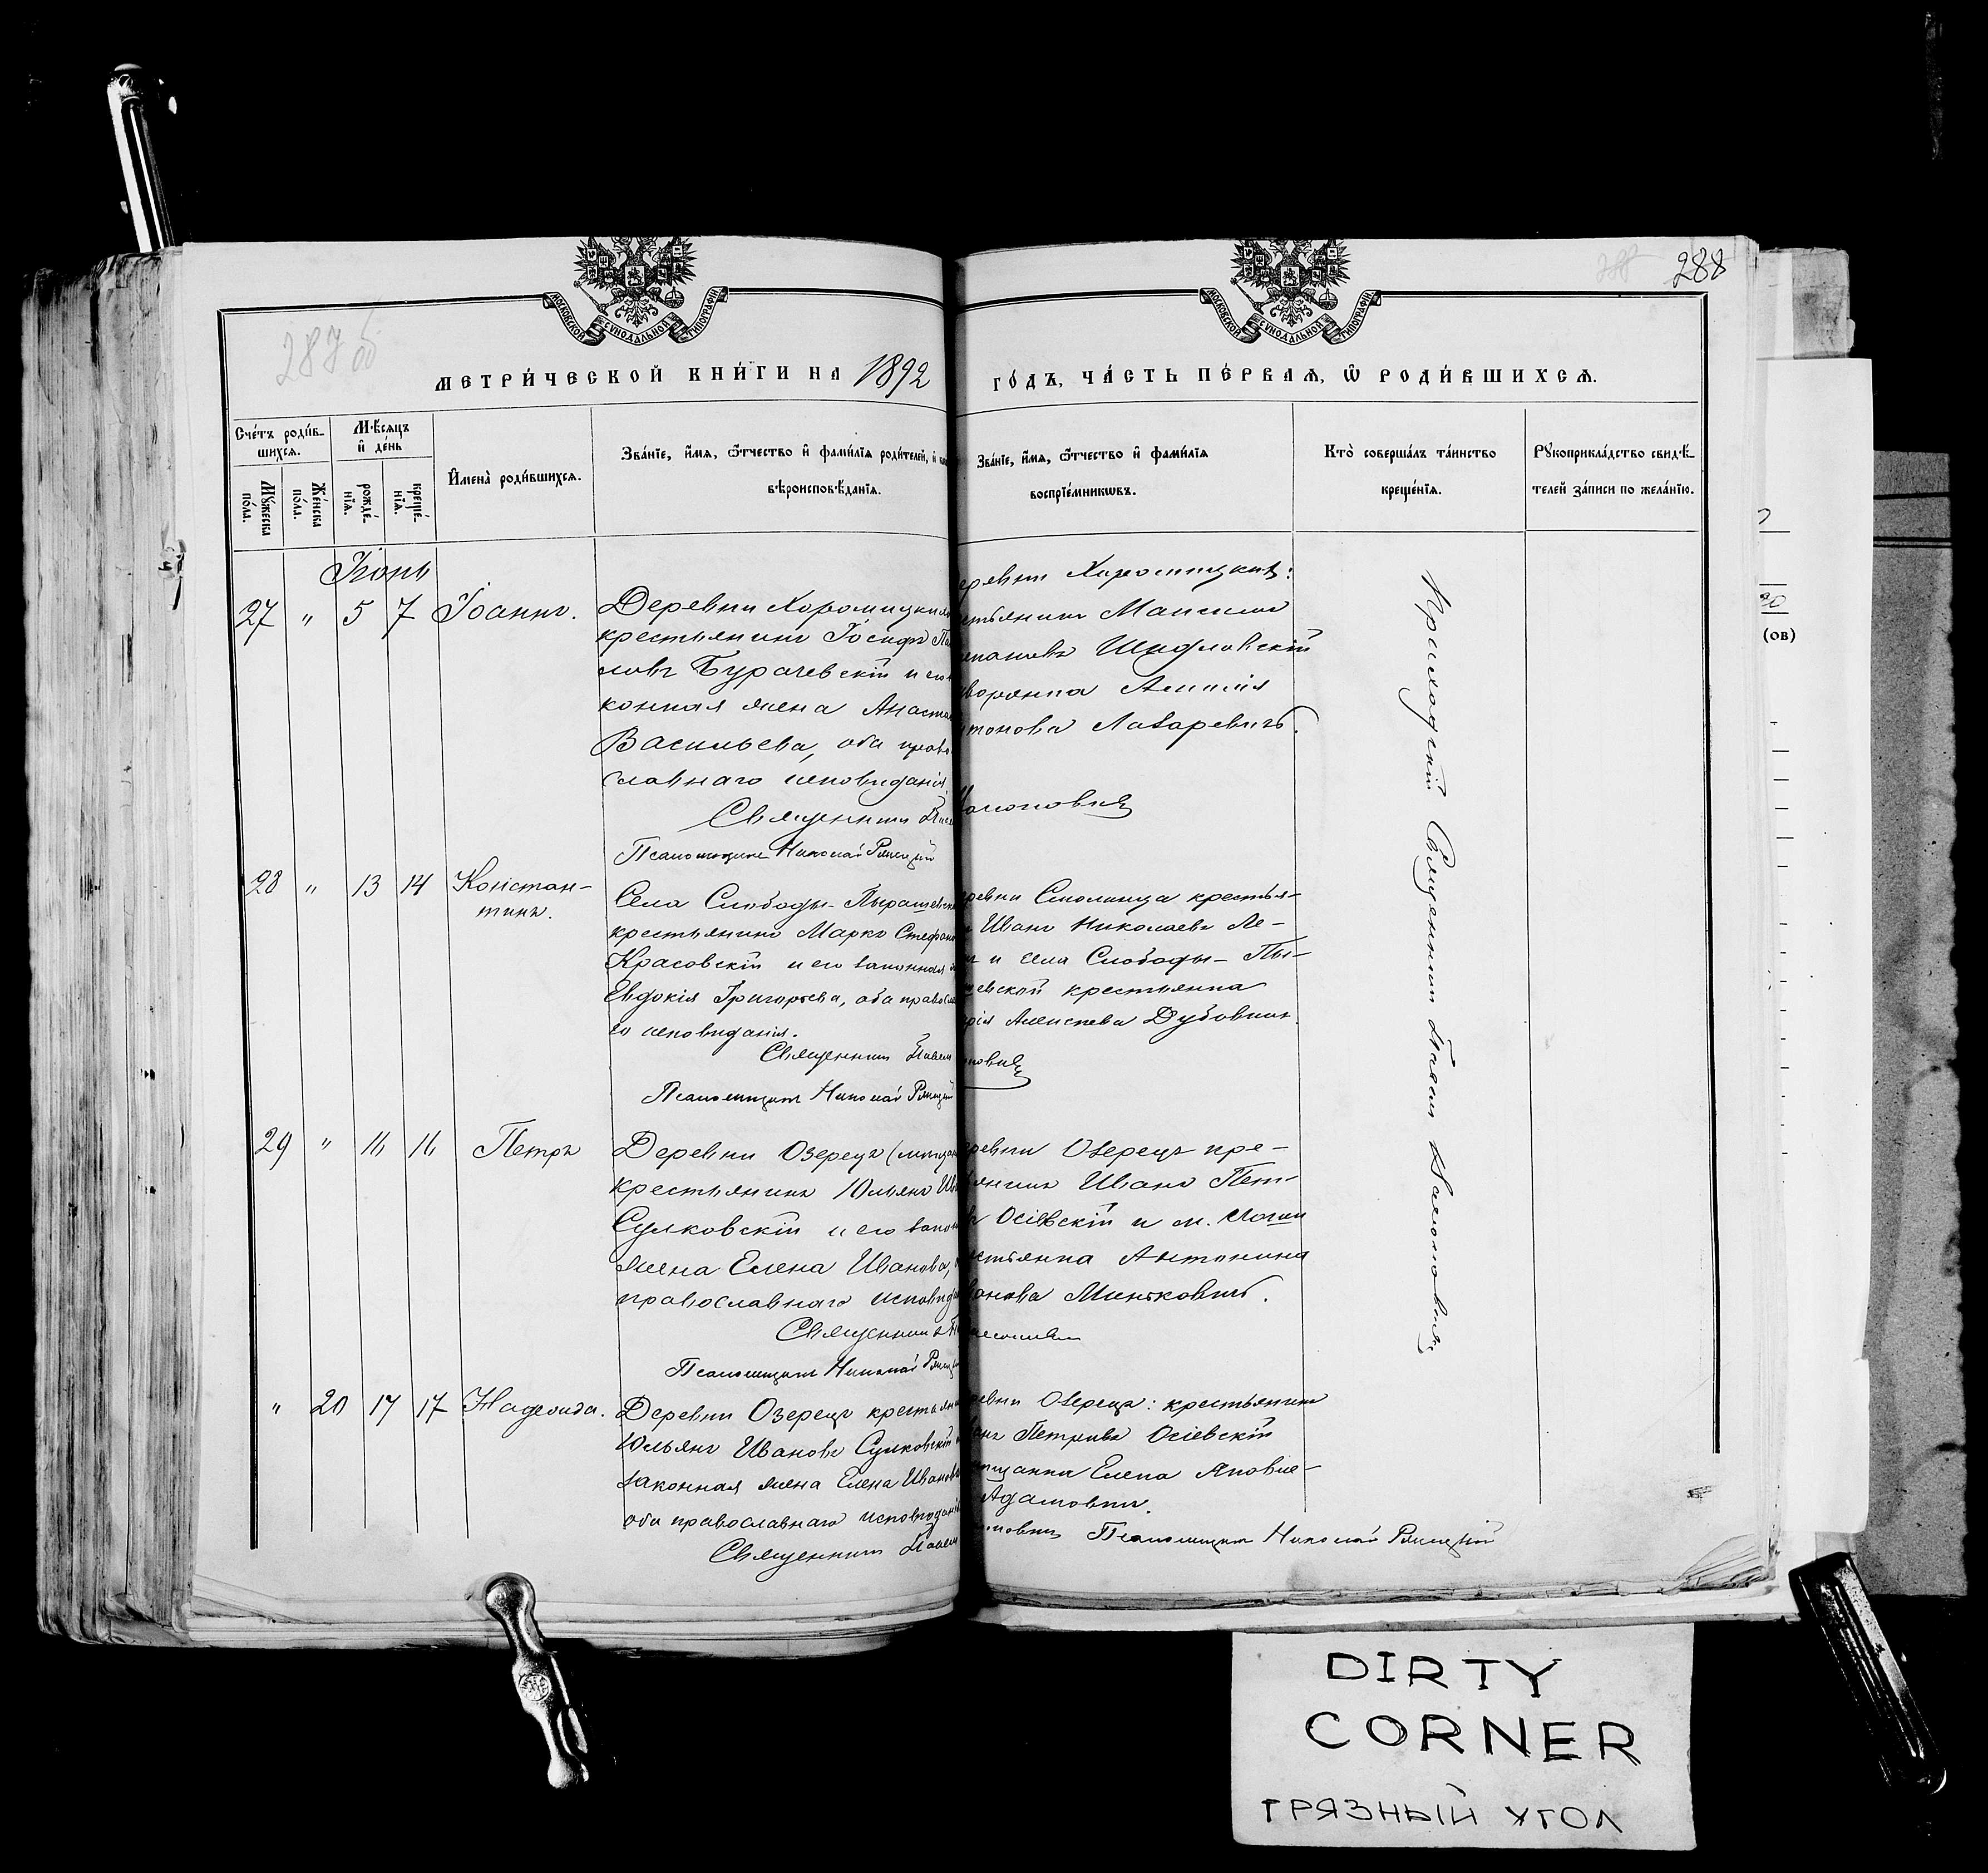 МОСКОВСКОЙ СѴНОДАЛЬНОЙ ТИПОГРАФІИ
МОСКОВСКОЙ СѴНОДАЛЬНОЙ ТИПОГРАФІИ
287 об
288
МЕТРИ́ЧЕСКОЙ КНИ́ГИ НА 1892
ГО́ДЪ, ЧА́СТЬ ПЕ́РВАѦ, Ѽ РОДИ́ВШИХСѦ.
Сче́тъ роди́в-
шихся.
Мꙋ́жеска по́ла.
Же́нска по́ла.
Мѣ́сяцъ и҆ де́нь
рожде́-нїя.
креще́-нїя.
И҆мена̀ роди́вшихся.
Зва́нїе, и҆́мя, ѻ҆́тчество и҆ фамѝлїя роди́телей, и҆
вѣроисповѣ́данїя.
Зва́нїе, и҆́мя, ѻ҆́тчество и҆ фами́лїя
воспрїе́мникѡвъ.
Кто̀ соверша́лъ та́инство
креще́нїя.
Рꙋкоприкла́дство свидѣ́-
телей за́писи по жела́нїю.
Іюнь
27 " 5 7 Іоаннъ.
Деревни Хоромицкихъ
крестьянинъ Іосифъ Па
ловъ Бурачевскій и его
конная жена Анаста
Васильева, оба право
славнаго исповѣданія.
Священникъ
Псаломщикъ Николай
еревни Хоромицкихъ:
стьянинъ
епановъ Шидловскій
ворянка
нтонова Лазаревичъ.
28 " 13 14 Констан-
тинъ.
Села Слободы-Пырашевской
крестьянинъ Марко Стефано
Красовскій и его законная
Евдокія Григорьева, оба правосла
го исповѣданія.
Священникъ Павел
Псаломщикъ Николай
ревни Смолица крестья-
Иванъ Николаевъ Ле-
и села Слободы-Пы-
шевской крестьянка
рія Алексѣева Дубовикъ.
29 " 16 16 Петръ
Деревни Озерецъ
крестьянинъ Юльянъ Ива
Сулковскій и его закон
жена Елена Иванова,
православнаго исповѣда
Священникъ
Псаломщикъ Николай
ревни Озерецъ кре-
янинъ Иванъ Пет-
Осіевскій и м.
стьянка Антонина
ванова Миньковичъ.
" 20 17 17 Надежда.
Деревни Озерецъ крестьяни
Юльянъ Ивановъ Сулковскій
законная жена Елена Иванова
оба православнаго исповѣданія
Священникъ Павел
ревни Озерецъ: крестьянинъ
ванъ Петровъ Осіевскій
щанка Елена Яковле-
Адамовичъ.
Псаломщикъ Николай
Священникъ Павелъ
(ов)
DIRTY
CORNER
ГРЯЗНЫЙ УГОЛ